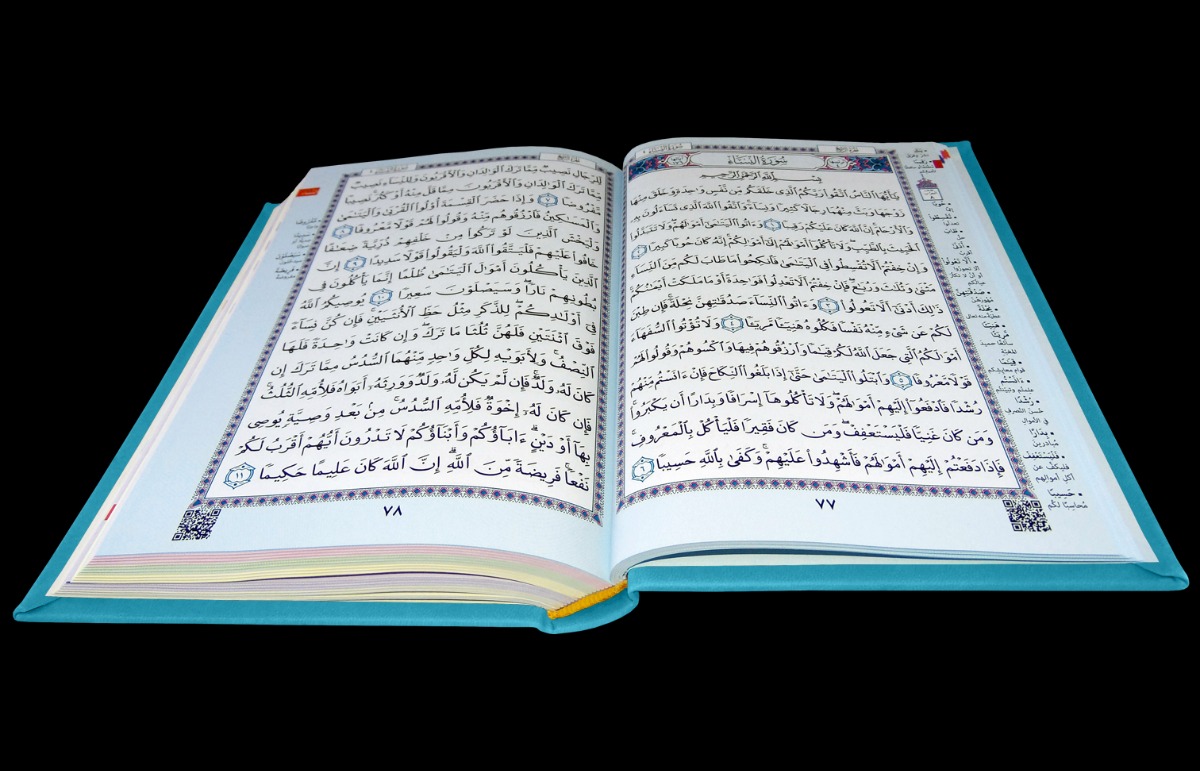 سُورَةُ النِّسَاءِ
بِسْمِ ٱللَّهِ ٱلرَّحْمَٰنِ ٱلرَّحِيمِ
يَٰٓأَيُّهَا ٱلنَّاسُ ٱتَّقُوا۟ رَبَّكُمُ ٱلَّذِى خَلَقَكُم مِّن نَّفْسٍ وَٰحِدَةٍ وَخَلَقَ مِنْهَا
زَوْجَهَا وَبَثَّ مِنْهُمَا رِجَالًا كَثِيرًا وَنِسَآءً ۚ وَٱتَّقُوا۟ ٱللَّهَ ٱلَّذِى تَسَآءَلُونَ بِهِۦ
وَٱلْأَرْحَامَ ۚ إِنَّ ٱللَّهَ كَانَ عَلَيْكُمْ رَقِيبًا ١ وَءَاتُوا۟ ٱلْيَتَٰمَىٰٓ أَمْوَٰلَهُمْ ۖ وَلَا تَتَبَدَّلُوا۟
ٱلْخَبِيثَ بِٱلطَّيِّبِ ۖ وَلَا تَأْكُلُوٓا۟ أَمْوَٰلَهُمْ إِلَىٰٓ أَمْوَٰلِكُمْ ۚ إِنَّهُۥ كَانَ حُوبًا كَبِيرًا ٢
وَإِنْ خِفْتُمْ أَلَّا تُقْسِطُوا۟ فِى ٱلْيَتَٰمَىٰ فَٱنكِحُوا۟ مَا طَابَ لَكُم مِّنَ ٱلنِّسَآءِ
مَثْنَىٰ وَثُلَٰثَ وَرُبَٰعَ ۖ فَإِنْ خِفْتُمْ أَلَّا تَعْدِلُوا۟ فَوَٰحِدَةً أَوْ مَا مَلَكَتْ أَيْمَٰنُكُمْ ۚ
ذَٰلِكَ أَدْنَىٰٓ أَلَّا تَعُولُوا۟ ٣ وَءَاتُوا۟ ٱلنِّسَآءَ صَدُقَٰتِهِنَّ نِحْلَةً ۚ فَإِن طِبْنَ
لَكُمْ عَن شَىْءٍ مِّنْهُ نَفْسًا فَكُلُوهُ هَنِيٓـًٔا مَّرِيٓـًٔا ٤ وَلَا تُؤْتُوا۟ ٱلسُّفَهَآءَ
أَمْوَٰلَكُمُ ٱلَّتِى جَعَلَ ٱللَّهُ لَكُمْ قِيَٰمًا وَٱرْزُقُوهُمْ فِيهَا وَٱكْسُوهُمْ وَقُولُوا۟ لَهُمْ
قَوْلًا مَّعْرُوفًا ٥ وَٱبْتَلُوا۟ ٱلْيَتَٰمَىٰ حَتَّىٰٓ إِذَا بَلَغُوا۟ ٱلنِّكَاحَ فَإِنْ ءَانَسْتُم مِّنْهُمْ
رُشْدًا فَٱدْفَعُوٓا۟ إِلَيْهِمْ أَمْوَٰلَهُمْ ۖ وَلَا تَأْكُلُوهَآ إِسْرَافًا وَبِدَارًا أَن يَكْبَرُوا۟ ۚ
وَمَن كَانَ غَنِيًّا فَلْيَسْتَعْفِفْ ۖ وَمَن كَانَ فَقِيرًا فَلْيَأْكُلْ بِٱلْمَعْرُوفِ ۚ
فَإِذَا دَفَعْتُمْ إِلَيْهِمْ أَمْوَٰلَهُمْ فَأَشْهِدُوا۟ عَلَيْهِمْ ۚ وَكَفَىٰ بِٱللَّهِ حَسِيبًا ٦
٧٧
تُقْسِطُوا
أَدْنَى
صَدُقَاتِهِنَّ
مُهُورَهُنَّ
نِحْلَةً
هَنِيئًا
مَرِيئًا
قِيَامًا
آنَسْتُم
رُشْدًا
حُسْنَ التصرف
في الأموال
بِدَارًا
مُبادِرين
فَلْيَسْتَعْفِفْ
فليكفّ عن
أكل أموالهم
حَسِيبًا
محاسبًا لكم
لِّلرِّجَالِ نَصِيبٌ مِّمَّا تَرَكَ ٱلْوَٰلِدَانِ وَٱلْأَقْرَبُونَ وَلِلنِّسَآءِ نَصِيبٌ
مِّمَّا تَرَكَ ٱلْوَٰلِدَانِ وَٱلْأَقْرَبُونَ مِمَّا قَلَّ مِنْهُ أَوْ كَثُرَ ۚ نَصِيبًا
مَّفْرُوضًا ٧ وَإِذَا حَضَرَ ٱلْقِسْمَةَ أُو۟لُوا۟ ٱلْقُرْبَىٰ وَٱلْيَتَٰمَىٰ
وَٱلْمَسَٰكِينُ فَٱرْزُقُوهُم مِّنْهُ وَقُولُوا۟ لَهُمْ قَوْلًا مَّعْرُوفًا ٨
وَلْيَخْشَ ٱلَّذِينَ لَوْ تَرَكُوا۟ مِنْ خَلْفِهِمْ ذُرِّيَّةً ضِعَٰفًا
خَافُوا۟ عَلَيْهِمْ فَلْيَتَّقُوا۟ ٱللَّهَ وَلْيَقُولُوا۟ قَوْلًا سَدِيدًا ٩ إِنَّ
ٱلَّذِينَ يَأْكُلُونَ أَمْوَٰلَ ٱلْيَتَٰمَىٰ ظُلْمًا إِنَّمَا يَأْكُلُونَ فِى
بُطُونِهِمْ نَارًا ۖ وَسَيَصْلَوْنَ سَعِيرًا ١٠ يُوصِيكُمُ ٱللَّهُ
فِىٓ أَوْلَٰدِكُمْ ۖ لِلذَّكَرِ مِثْلُ حَظِّ ٱلْأُنثَيَيْنِ ۚ فَإِن كُنَّ نِسَآءً
فَوْقَ ٱثْنَتَيْنِ فَلَهُنَّ ثُلُثَا مَا تَرَكَ ۖ وَإِن كَانَتْ وَٰحِدَةً فَلَهَا
ٱلنِّصْفُ ۚ وَلِأَبَوَيْهِ لِكُلِّ وَٰحِدٍ مِّنْهُمَا ٱلسُّدُسُ مِمَّا تَرَكَ إِن
كَانَ لَهُۥ وَلَدٌ ۚ فَإِن لَّمْ يَكُن لَّهُۥ وَلَدٌ وَوَرِثَهُۥٓ أَبَوَاهُ فَلِأُمِّهِ ٱلثُّلُثُ ۚ
فَإِن كَانَ لَهُۥٓ إِخْوَةٌ فَلِأُمِّهِ ٱلسُّدُسُ ۚ مِنۢ بَعْدِ وَصِيَّةٍ يُوصِى
بِهَآ أَوْ دَيْنٍ ۗ ءَابَآؤُكُمْ وَأَبْنَآؤُكُمْ لَا تَدْرُونَ أَيُّهُمْ أَقْرَبُ لَكُمْ
نَفْعًا ۚ فَرِيضَةً مِّنَ ٱللَّهِ ۗ إِنَّ ٱللَّهَ كَانَ عَلِيمًا حَكِيمًا ١١
٧٨